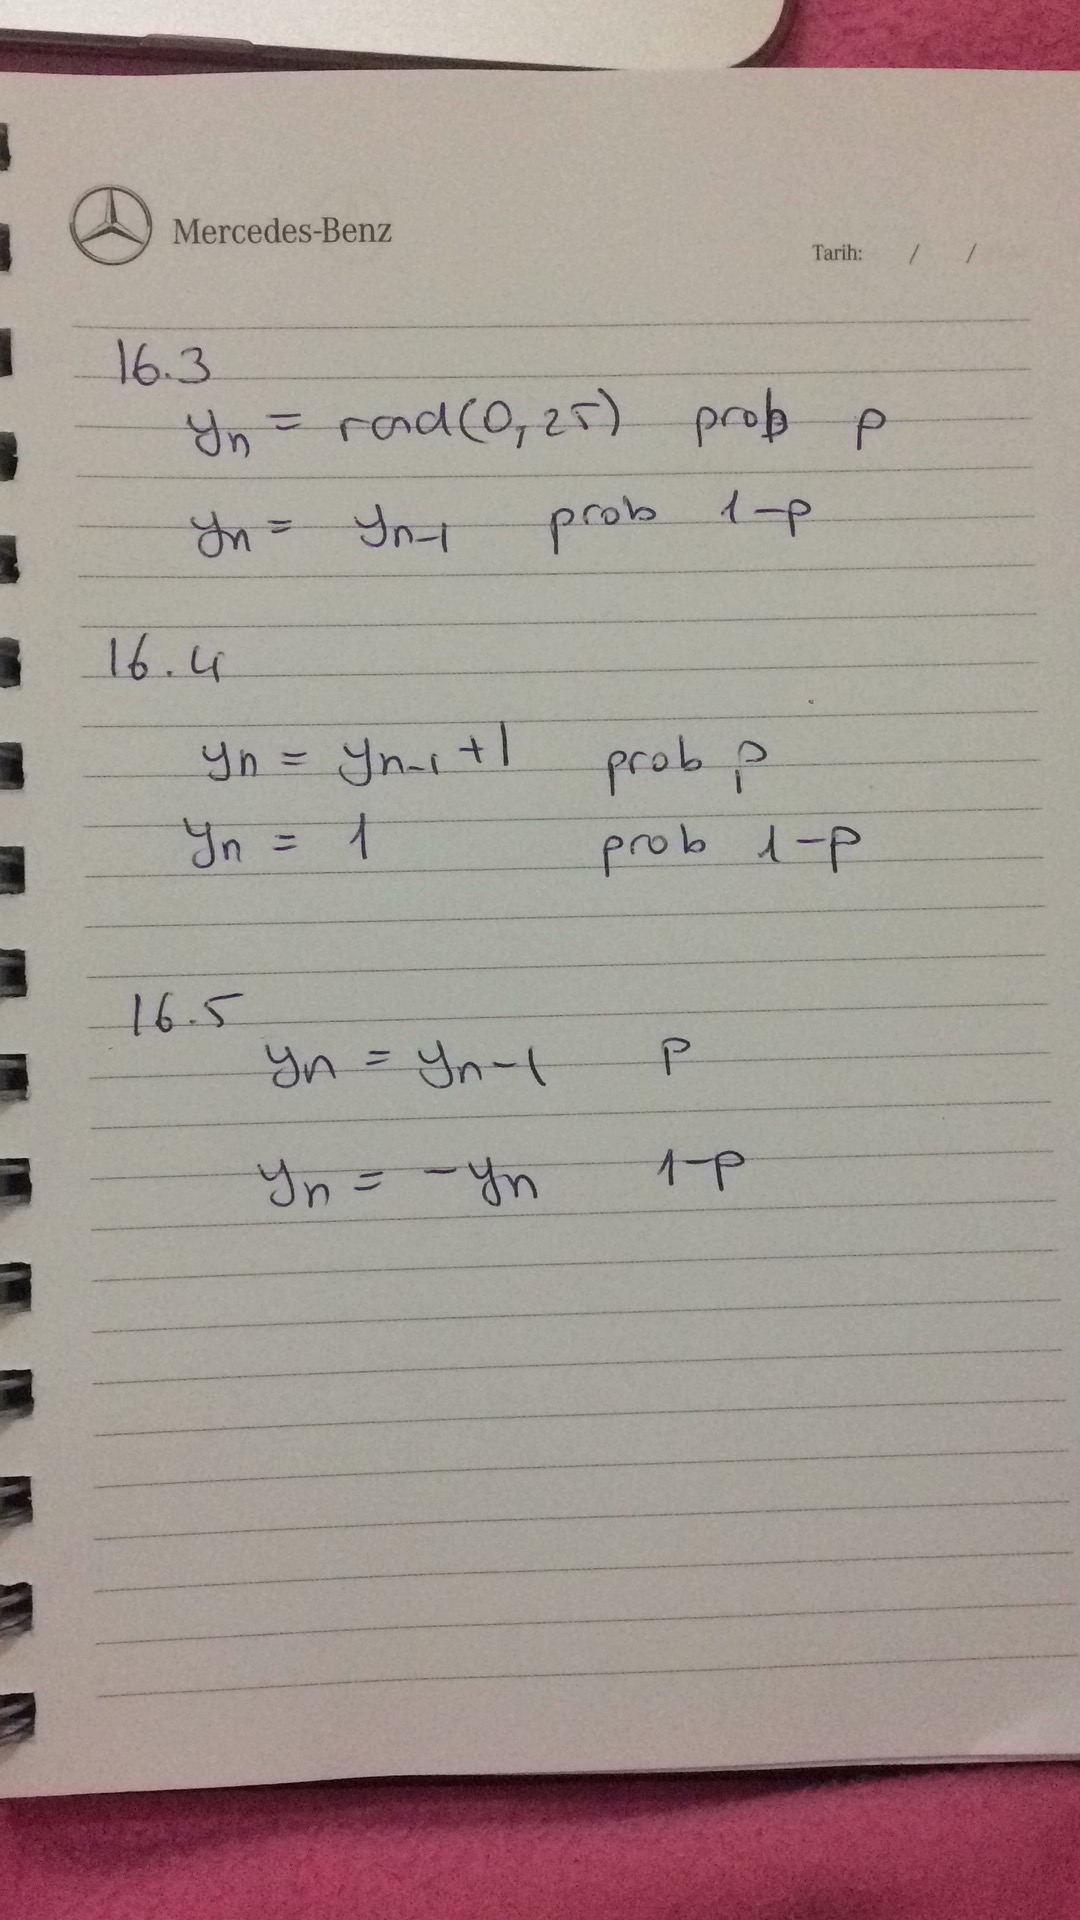 Mercedes-Benz
Tarih: / /
16.3
yn = rand(0,25) prob p
yn = yn-1 prob 1-p
16.4
yn = yn-1 +1 prob p
yn = 1 prob 1-p
16.5
yn = yn-1 p
yn = -yn 1-p